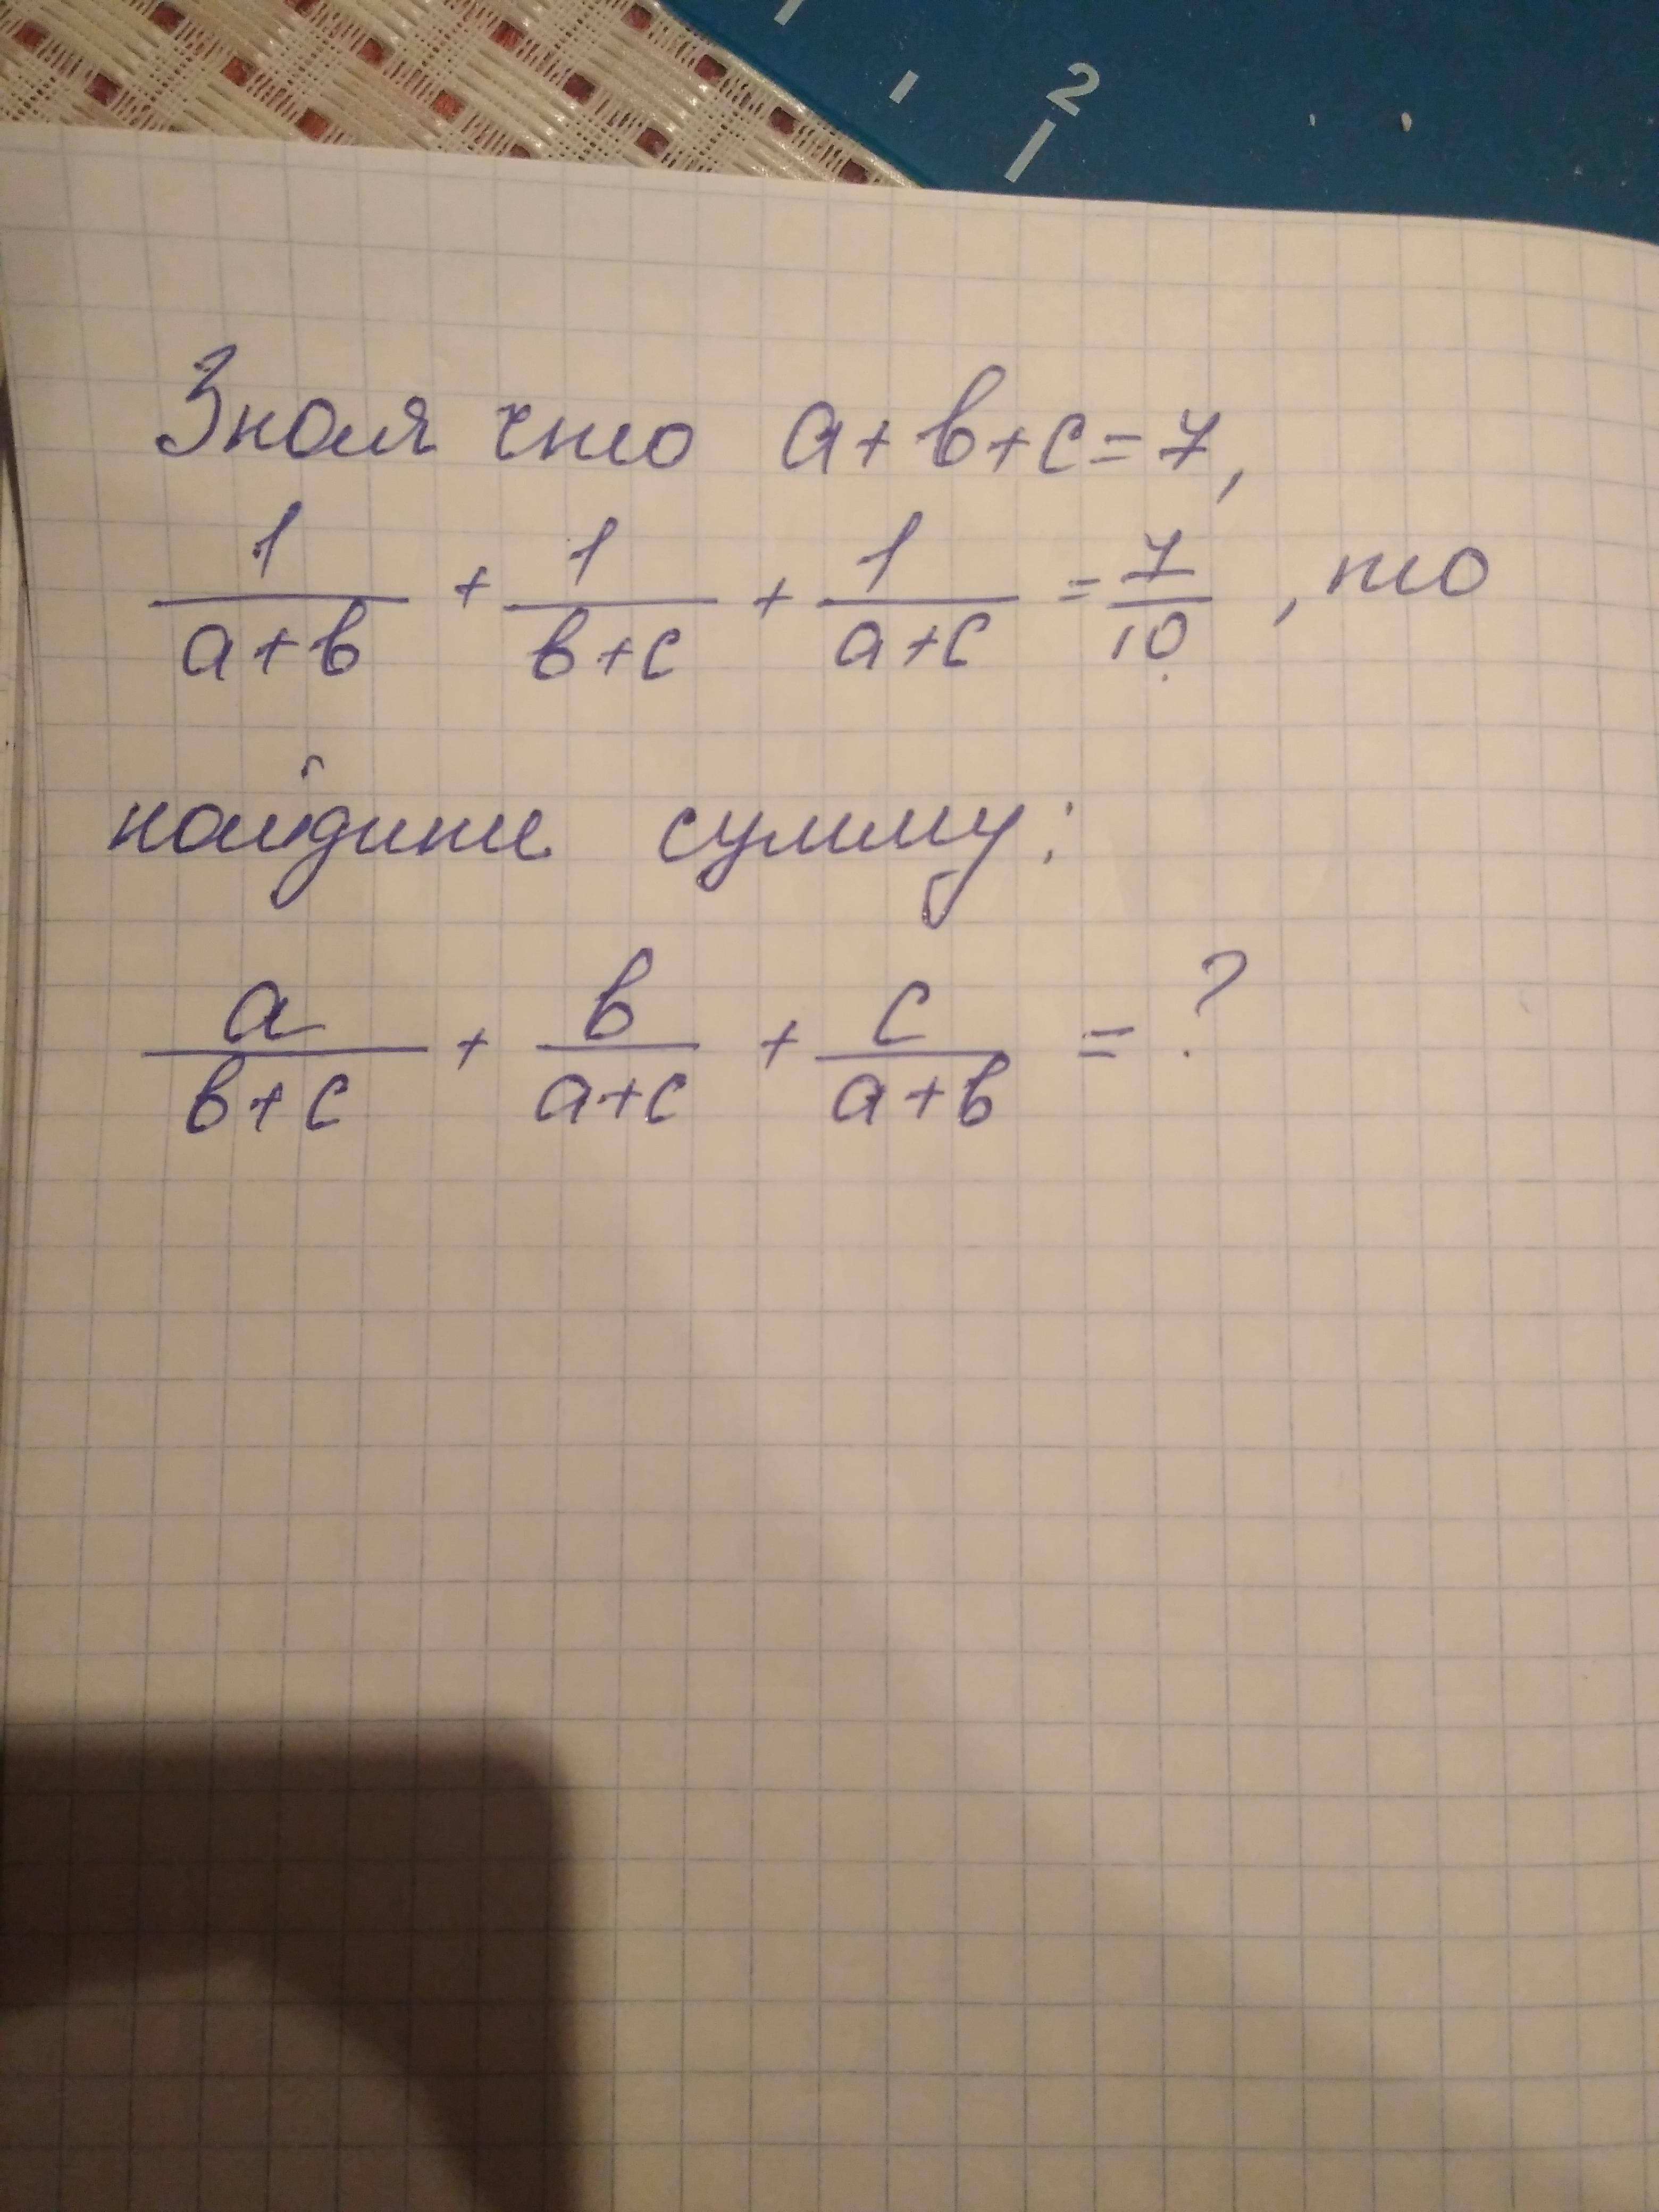 2
Зная что a+b+c=7,
1/(a+b) + 1/(b+c) + 1/(a+c) = 7/10, то
найдите сумму:
a/(b+c) + b/(a+c) + c/(a+b) = ?